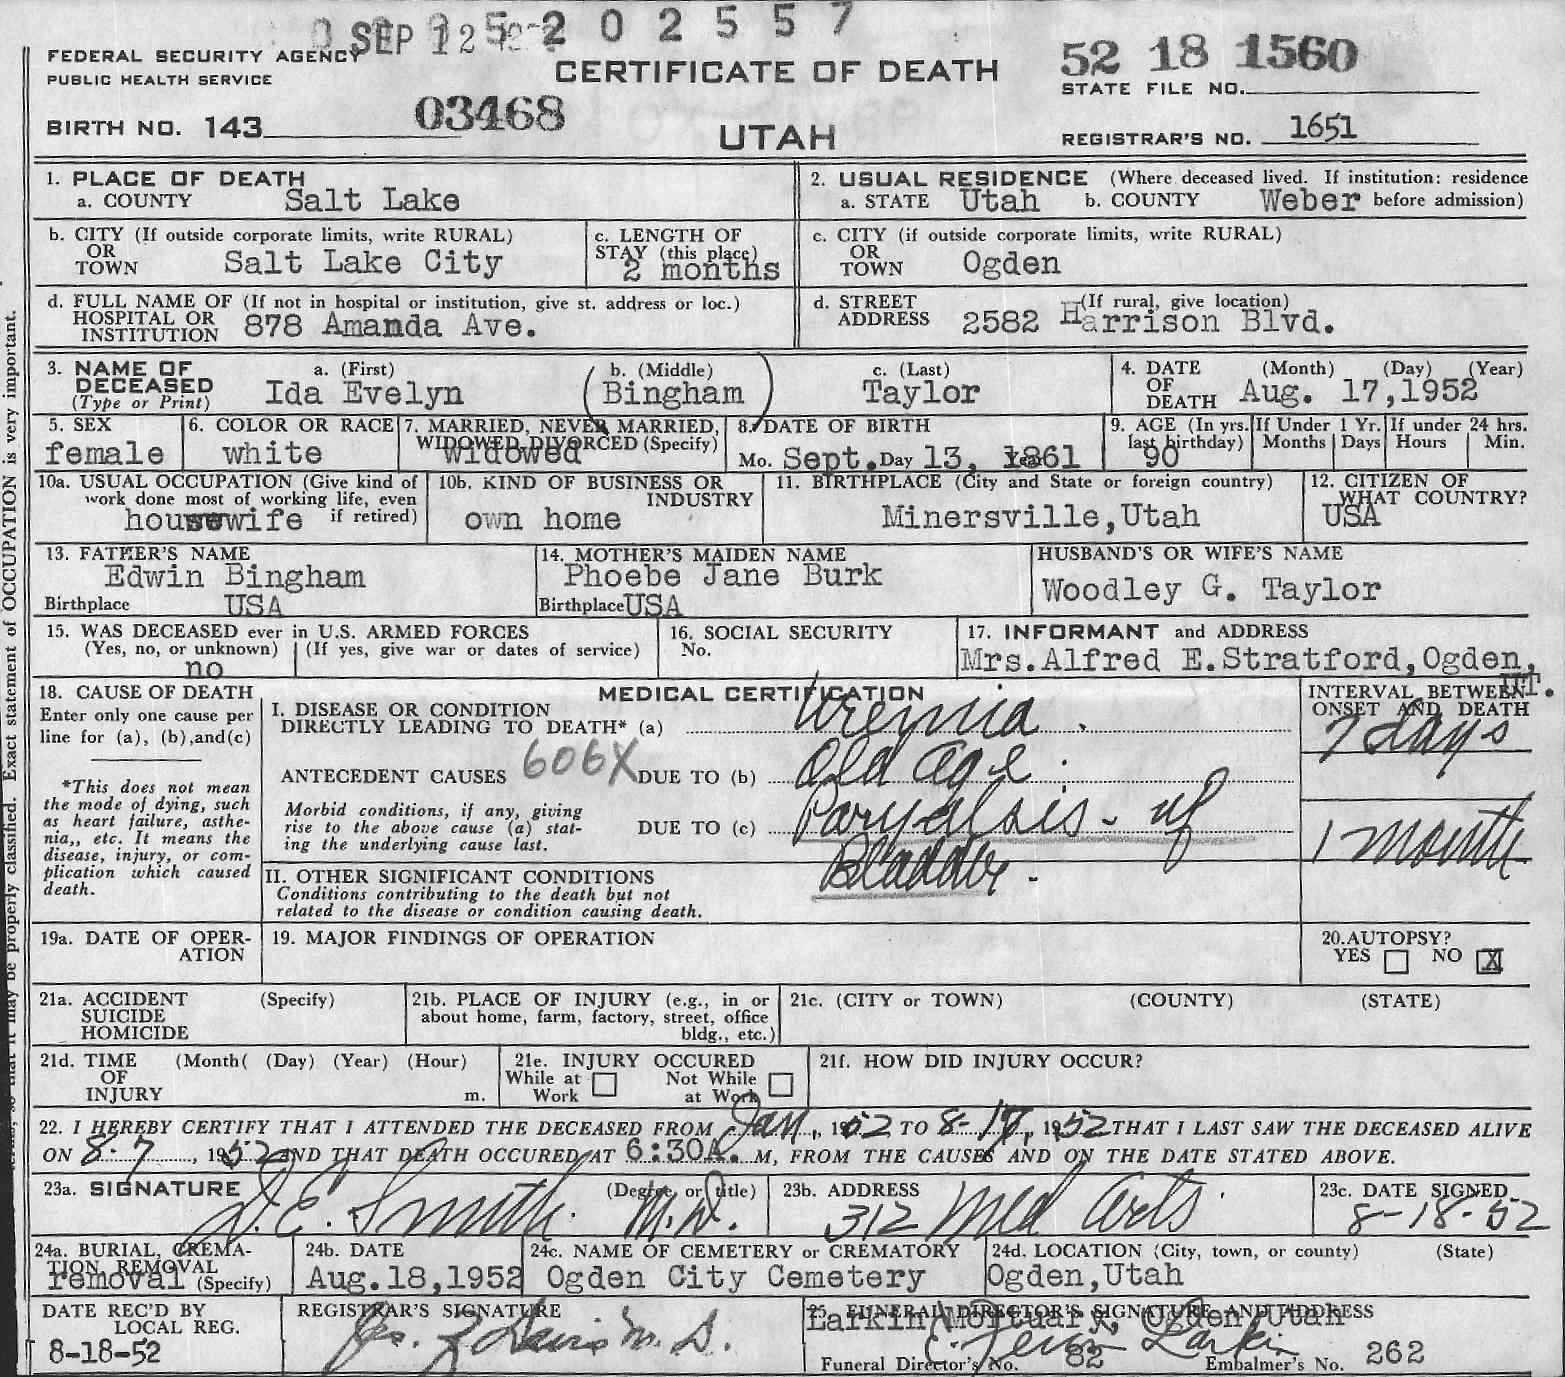 SEP 12 52 0 2 5 5 7
FEDERAL SECURITY AGENCY
PUBLIC HEALTH SERVICE
CERTIFICATE OF DEATH
52 18 1560
STATE FILE NO.
BIRTH NO. 143 03468
UTAH
REGISTRAR'S NO. 1651
1. PLACE OF DEATH
a. COUNTY Salt Lake
2. USUAL RESIDENCE (Where deceased lived. If institution: residence
a. STATE Utah b. COUNTY Weber before admission)
b. CITY (If outside corporate limits, write RURAL)
OR
TOWN Salt Lake City
c. LENGTH OF
STAY (this place)
2 months
c. CITY (if outside corporate limits, write RURAL)
OR
TOWN Ogden
d. FULL NAME OF (If not in hospital or institution, give st. address or loc.)
HOSPITAL OR
INSTITUTION 878 Amanda Ave.
d. STREET (If rural, give location)
ADDRESS 2582 Harrison Blvd.
3. NAME OF
DECEASED
(Type or Print)
a. (First)
Ida Evelyn
b. (Middle)
(Bingham)
c. (Last)
Taylor
4. DATE (Month) (Day) (Year)
OF
DEATH Aug. 17,1952
5. SEX
female
6. COLOR OR RACE
white
7. MARRIED, NEVER MARRIED,
WIDOWED, DIVORCED (Specify)
widowed
8. DATE OF BIRTH
Mo. Sept. Day 13, Year 1861
9. AGE (In yrs.
last birthday)
90
If Under 1 Yr.
Months Days
If under 24 hrs.
Hours Min.
10a. USUAL OCCUPATION (Give kind of
work done most of working life, even
housewife if retired)
10b. KIND OF BUSINESS OR
INDUSTRY
own home
11. BIRTHPLACE (City and State or foreign country)
Minersville,Utah
12. CITIZEN OF
WHAT COUNTRY?
USA
13. FATHER'S NAME
Edwin Bingham
Birthplace USA
14. MOTHER'S MAIDEN NAME
Phoebe Jane Burk
Birthplace USA
HUSBAND'S OR WIFE'S NAME
Woodley G. Taylor
15. WAS DECEASED ever in U.S. ARMED FORCES
(Yes, no, or unknown) (If yes, give war or dates of service)
no
16. SOCIAL SECURITY
No.
17. INFORMANT and ADDRESS
Mrs.Alfred E.Stratford,Ogden,
UT.
18. CAUSE OF DEATH
Enter only one cause per
line for (a), (b),and(c)
*This does not mean
the mode of dying, such
as heart failure, asthe-
nia,, etc. It means the
disease, injury, or com-
plication which caused
death.
MEDICAL CERTIFICATION
I. DISEASE OR CONDITION
DIRECTLY LEADING TO DEATH* (a) Uremia.
ANTECEDENT CAUSES 606X DUE TO (b) Old age.
Morbid conditions, if any, giving
rise to the above cause (a) stat-
ing the underlying cause last.
DUE TO (c) Paryalsis - of
Bladder -
II. OTHER SIGNIFICANT CONDITIONS
Conditions contributing to the death but not
related to the disease or condition causing death.
INTERVAL BETWEEN
ONSET AND DEATH
7 days
1 month
19a. DATE OF OPER-
ATION
19. MAJOR FINDINGS OF OPERATION
20.AUTOPSY?
YES NO X
21a. ACCIDENT (Specify)
SUICIDE
HOMICIDE
21b. PLACE OF INJURY (e.g., in or
about home, farm, factory, street, office
bldg., etc.)
21c. (CITY or TOWN) (COUNTY) (STATE)
21d. TIME (Month( (Day) (Year) (Hour)
OF
INJURY m.
21e. INJURY OCCURED
While at Work
Not While at Work
21f. HOW DID INJURY OCCUR?
22. I HEREBY CERTIFY THAT I ATTENDED THE DECEASED FROM Jan, 1952 TO 8-17, 1952 THAT I LAST SAW THE DECEASED ALIVE
ON 8-7, 1952 AND THAT DEATH OCCURED AT 6:30A. M, FROM THE CAUSES AND ON THE DATE STATED ABOVE.
23a. SIGNATURE (Degree or title)
D. E. Smith M.D.
23b. ADDRESS
312 Med Arts.
23c. DATE SIGNED
8-18-52
24a. BURIAL, CREMA-
TION, REMOVAL
removal (Specify)
24b. DATE
Aug.18,1952
24c. NAME OF CEMETERY or CREMATORY
Ogden City Cemetery
24d. LOCATION (City, town, or county) (State)
Ogden,Utah
DATE REC'D BY
LOCAL REG.
8-18-52
REGISTRAR'S SIGNATURE
Davis M. D.
25. FUNERAL DIRECTOR'S SIGNATURE AND ADDRESS
Larkin Mortuary, Ogden,Utah
Larkin
Funeral Director's No. 82 Embalmer's No. 262
may be properly classified. Exact statement of OCCUPATION is very important.